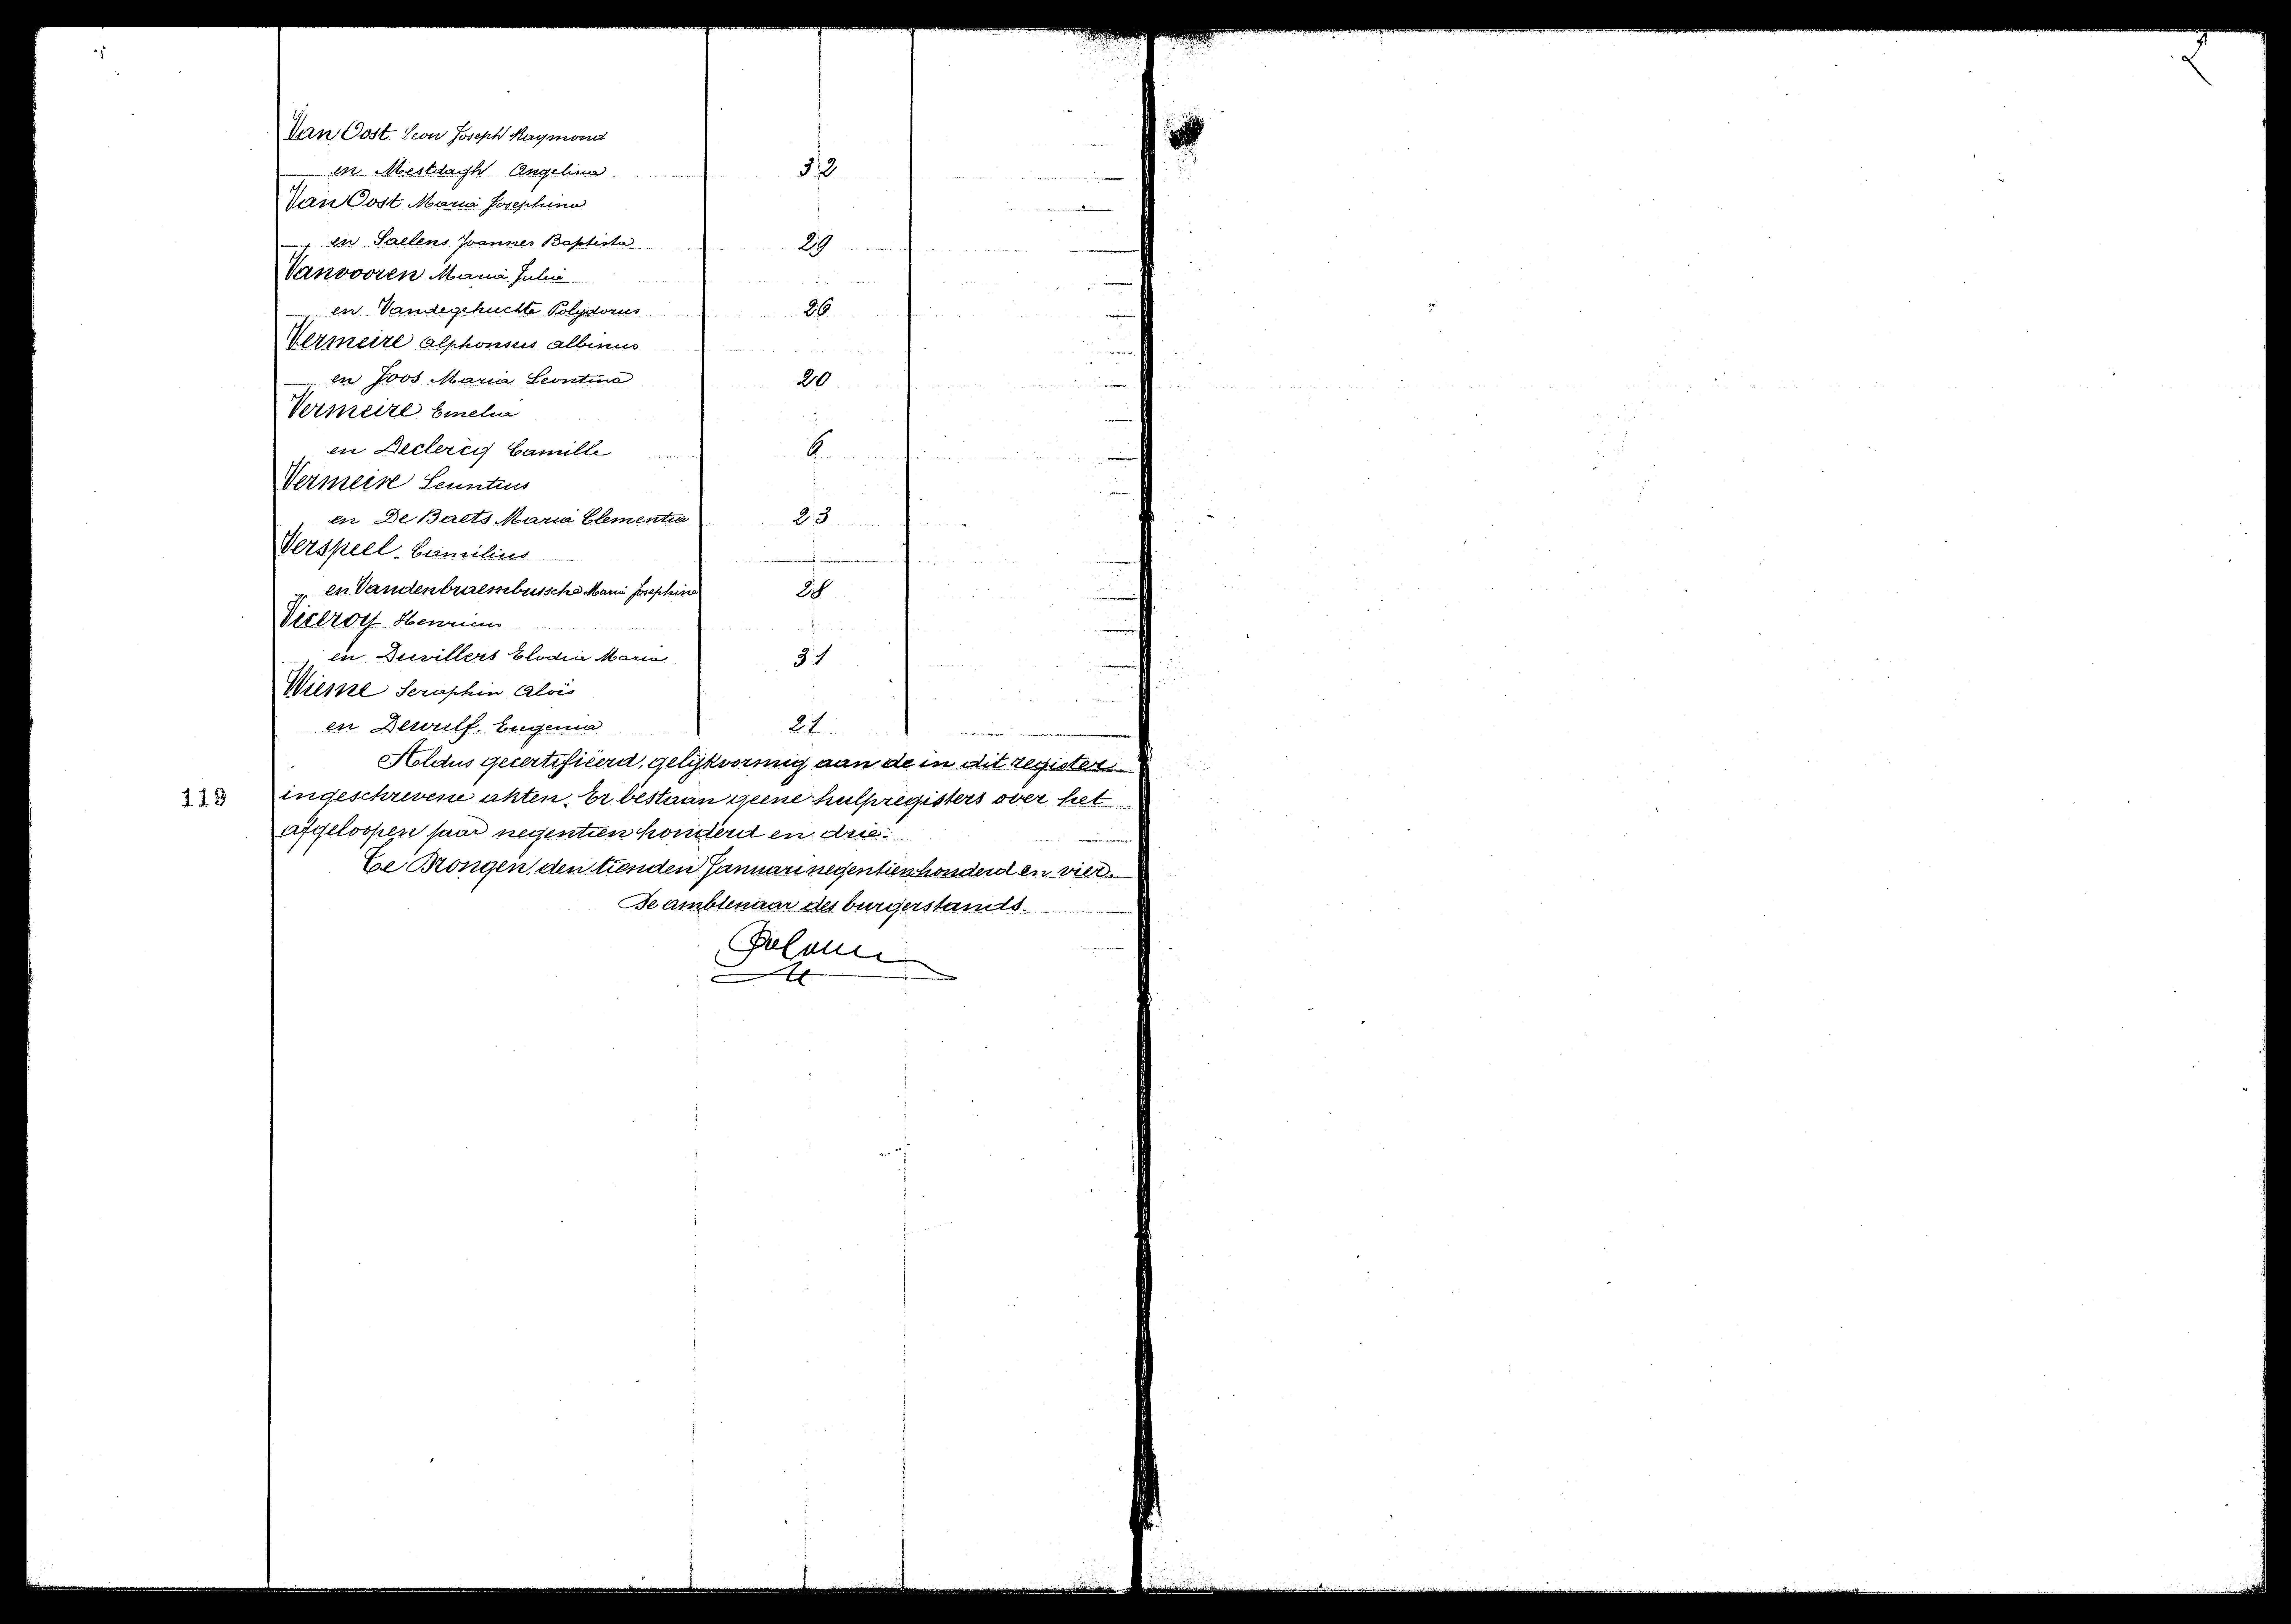 Van Oost Leon Joseph Raymond
en Mestdagh Angelina 32
Van Oost Maria Josephina
en Saelens Joannes Baptista 29
Vanvooren Maria Julia
en Vandegehuchte Polydorus 26
Vermeire Alphonsus Albinus
en Joos Maria Leontina 20
Vermeire Emelia
en Declercq Camille 6
Vermeire Leuntius
en De Baets Maria Clementia 23
Verspeel Camilius
en Vandenbraembussche Maria Josephine 28
Viceroy Henricus
en Duvillers Elodia Maria 31
Wieme Seraphin Aloïs
en Dewulf Eugenia 21
Aldus gecertifiëerd, gelijkvormig aan de in dit register
119 ingeschrevene akten. Er bestaan geene hulpregisters over het
afgeloopen jaar negentien honderd en drie.
Te Drongen, den tienden Januari negentien honderd en vier.
De ambtenaar des burgerstands.
2